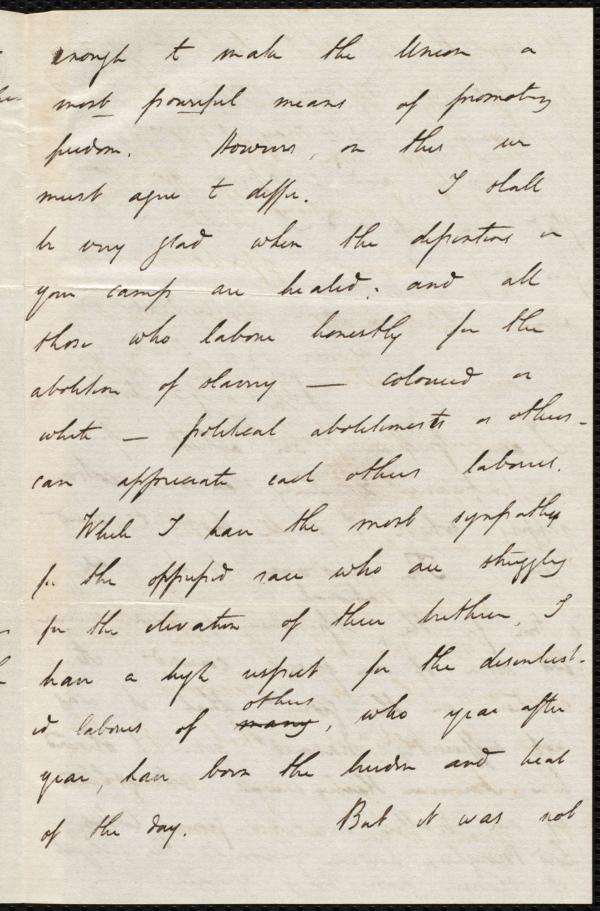 enough to make the Union a
most powerful means of promoting
freedom. However, on this we
must agree to differ. I shall
be very glad when the dissentions in
your camp are healed; and all
those who labour honestly for the
abolition of slavery — coloured or
white — political abolitionists or others -
can appreciate each others labours.
While I have the most sympathy
for the oppressed race who are struggling
for the elevation of their brethren, I
have a high respect for the disinterest-
ed labours of ~~many~~ others, who year after
year, have born the burden and heat
of the day. But it was not